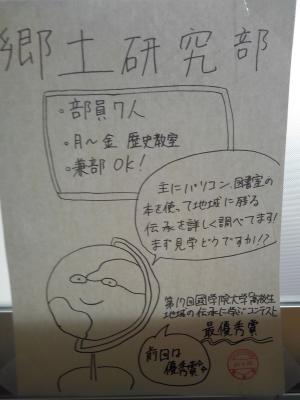 郷土研究部
・部員7人
・月～金 歴史教室
・兼部OK!
主にパソコン、図書室の
本を使って地域に残る
伝承を詳しく調べてます!
まず見学どうですか!?
第17回國學院大學「高校生
地域の伝承に学ぶ」コンテスト
最優秀賞
前回は
優秀賞